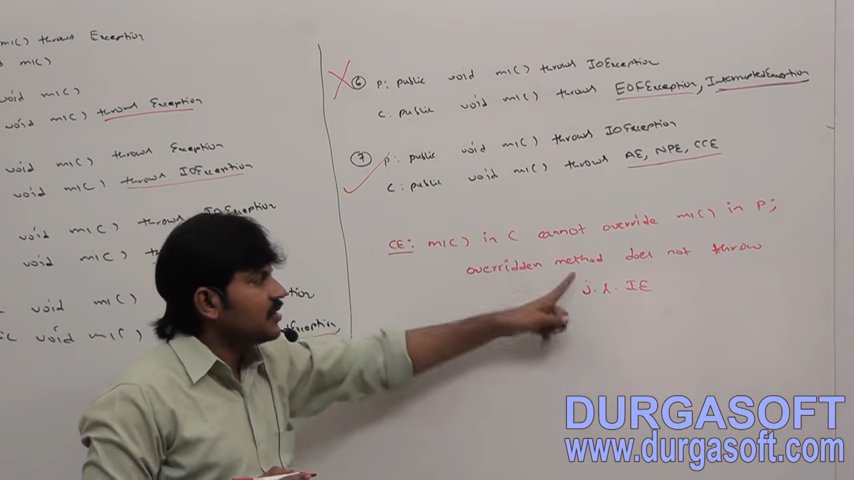 m1() throws Exception
m1()
void m1()
void m1() throws Exception
void m1() throws Exception
void m1() throws IOException
void m1() throws IOException
void m1()
void m1()
void m1()
⑥ P: public void m1() throws IOException
C: public void m1() throws EOFException, InterruptedException
⑦ P: public void m1() throws IOException
C: public void m1() throws AE, NPE, CCE
CE: m1() in C cannot override m1() in P;
overridden method does not throw
j.l.IE
DURGASOFT
www.durgasoft.com